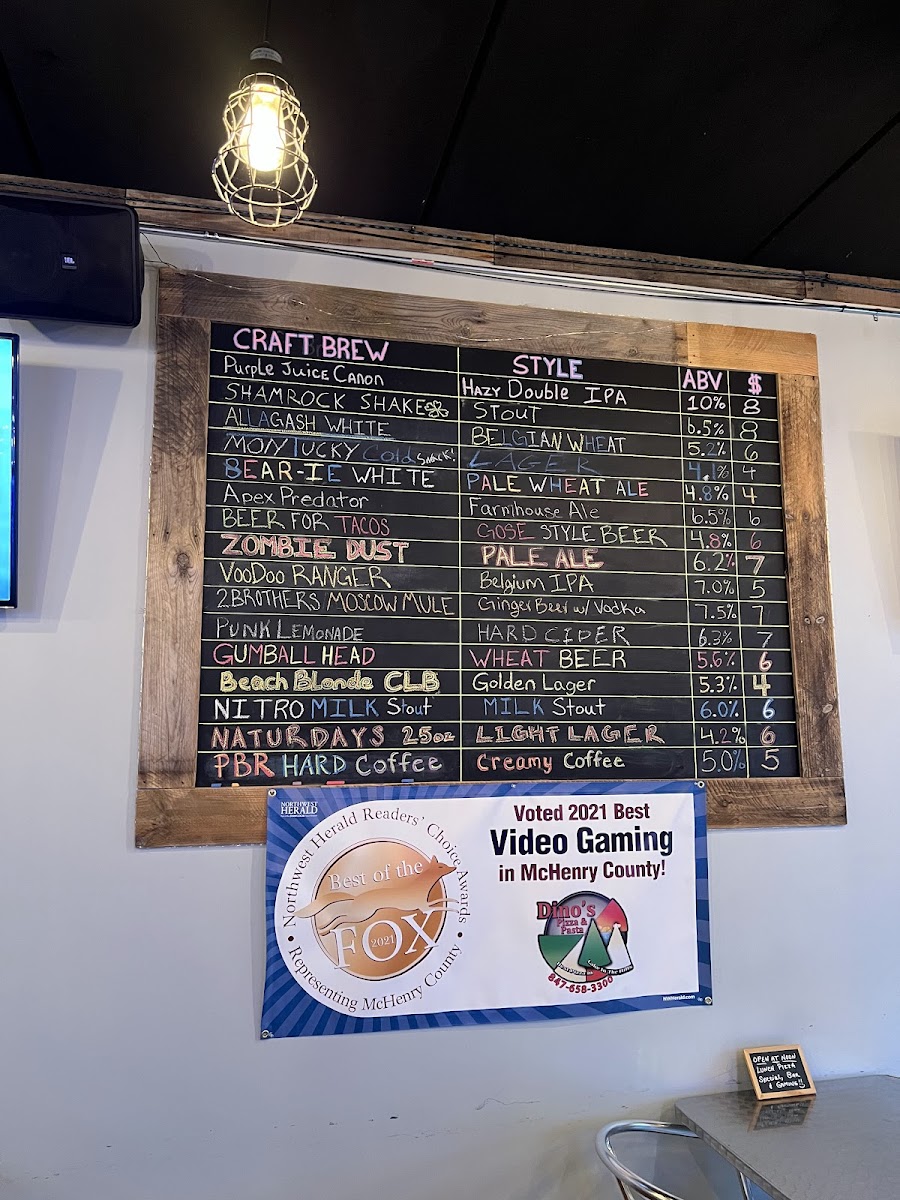 JBL
CRAFT BREW STYLE ABV $
Purple Juice Canon Hazy Double IPA 10% 8
SHAMROCK SHAKE STOUT 6.5% 8
ALLAGASH WHITE BELGIAN WHEAT 5.2% 6
MONTUCKY Cold Snack! LAGER 4.1% 4
BEAR-IE WHITE PALE WHEAT ALE 4.8% 4
Apex Predator Farmhouse Ale 6.5% 6
BEER FOR TACOS GOSE STYLE BEER 4.8% 6
ZOMBIE DUST PALE ALE 6.2% 7
VooDoo RANGER Belgium IPA 7.0% 5
2 BROTHERS MOSCOW MULE Ginger Beer w/ Vodka 7.5% 7
PUNK LEMONADE HARD CIDER 6.3% 7
GUMBALL HEAD WHEAT BEER 5.6% 6
Beach Blonde CLB Golden Lager 5.3% 4
NITRO MILK Stout MILK Stout 6.0% 6
NATURDAYS 25oz LIGHT LAGER 4.2% 6
PBR HARD Coffee Creamy Coffee 5.0% 5
NORTHWEST
HERALD
Northwest Herald Readers' Choice Awards
Best of the
FOX
2021
• Representing McHenry County •
Voted 2021 Best
Video Gaming
in McHenry County!
Dino's
Pizza &
Pasta
847-658-3300
NWHerald.com
OPEN AT NOON
LUNCH PIZZA
SPECIAL, BAR
& GAMING!!